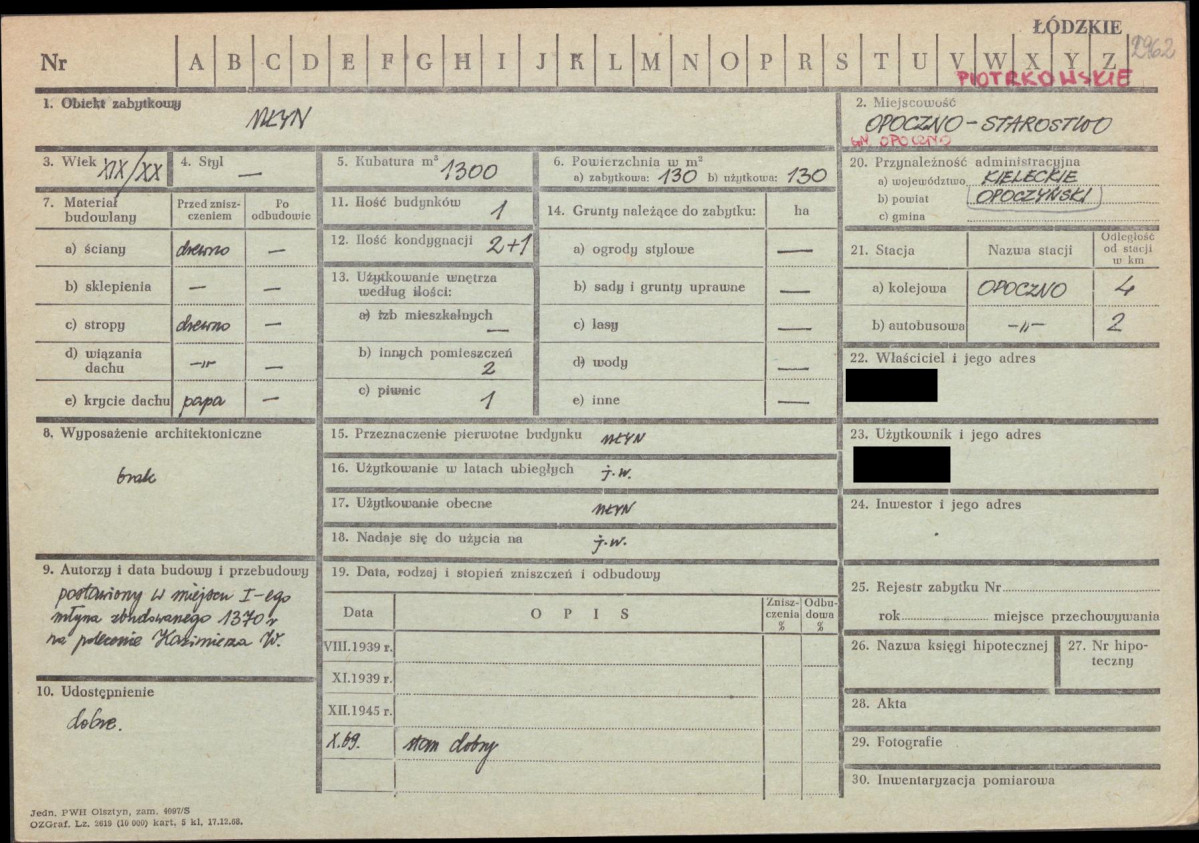 ŁÓDZKIE
Nr A B C D E F G H I J K L M N O P R S T U V W X Y Z 2962
PIOTRKOWSKIE
1. Obiekt zabytkowy
MŁYN
2. Miejscowość
OPOCZNO - STAROSTWO
GM. OPOCZNO
3. Wiek XIX/XX
4. Styl —
5. Kubatura m³ 1300
6. Powierzchnia w m²
a) zabytkowa: 130 b) użytkowa: 130
20. Przynależność administracyjna
a) województwo KIELECKIE
b) powiat OPOCZYŃSKI
c) gmina
7. Materiał budowlany
Przed zniszczeniem
Po odbudowie
a) ściany drewno —
b) sklepienia — —
c) stropy drewno —
d) wiązania dachu —"— —
e) krycie dachu papa —
11. Ilość budynków 1
12. Ilość kondygnacji 2+1
13. Użytkowanie wnętrza
według ilości:
a) izb mieszkalnych —
b) innych pomieszczeń 2
c) piwnic 1
14. Grunty należące do zabytku: ha
a) ogrody stylowe —
b) sady i grunty uprawne —
c) lasy —
d) wody —
e) inne —
21. Stacja Nazwa stacji Odległość od stacji w km
a) kolejowa OPOCZNO 4
b) autobusowa —"— 2
22. Właściciel i jego adres
8. Wyposażenie architektoniczne
brak
15. Przeznaczenie pierwotne budynku MŁYN
16. Użytkowanie w latach ubiegłych j.w.
17. Użytkowanie obecne MŁYN
18. Nadaje się do użycia na j.w.
23. Użytkownik i jego adres
24. Inwestor i jego adres
9. Autorzy i data budowy i przebudowy
postawiony w miejscu I-ego
młyna zbudowanego 1370 r
na polecenie Kazimierza W.
10. Udostępnienie
dobre.
19. Data, rodzaj i stopień zniszczeń i odbudowy
Data OPIS Zniszczenia % Odbudowa %
VIII.1939 r.
XI.1939 r.
XII.1945 r.
X.69. stan dobry
25. Rejestr zabytku Nr
rok miejsce przechowywania
26. Nazwa księgi hipotecznej
27. Nr hipoteczny
28. Akta
29. Fotografie
30. Inwentaryzacja pomiarowa
Jedn. PWH Olsztyn, zam. 4697/S
OZGraf. Lz. 2619 (10 000) kart, 5 kl, 17.12.68.